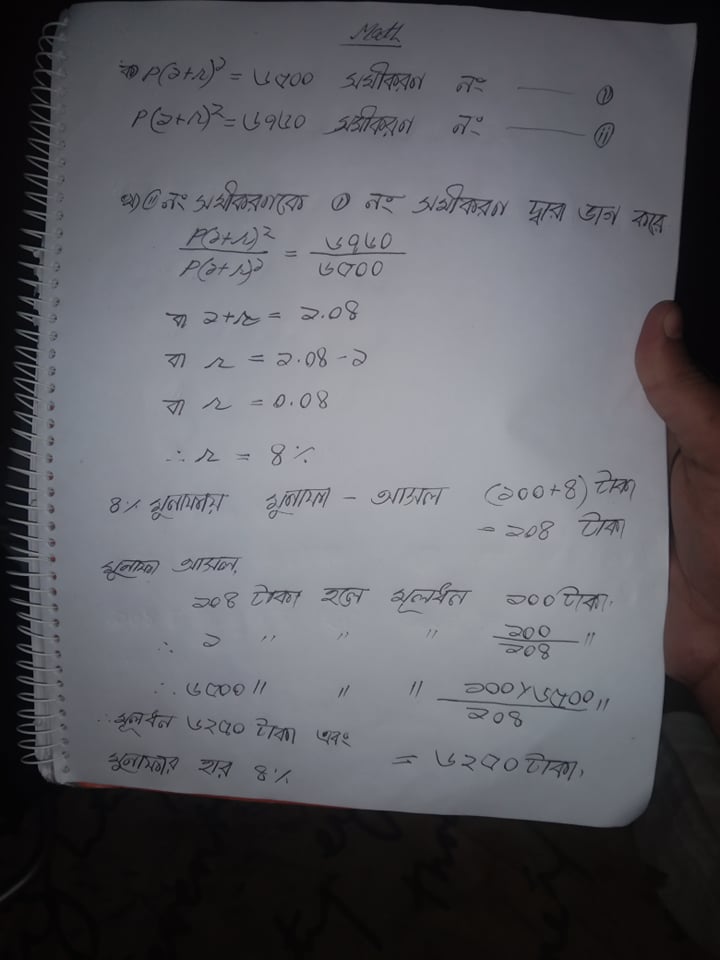 Math
ক) P(১+r)^১ = ৬৫০০ সমীকরণ নং —— (i)
P(১+r)^২ = ৬৭৬০ সমীকরণ নং —— (ii)
খ) (ii) নং সমীকরণকে (i) নং সমীকরণ দ্বারা ভাগ করে
P(১+r)^২ / P(১+r)^১ = ৬৭৬০ / ৬৫০০
বা ১+r = ১.০৪
বা r = ১.০৪ - ১
বা r = ০.০৪
∴ r = ৪%
৪% মুনাফায় মুনাফা - আসল (১০০+৪) টাকা
= ১০৪ টাকা
মুনাফা আসল,
১০৪ টাকা হলে মূলধন ১০০ টাকা।
∴ ১ " " " ১০০ / ১০৪ "
∴ ৬৫০০ " " " ১০০×৬৫০০ / ১০৪ "
= ৬২৫০ টাকা।
∴ মূলধন ৬২৫০ টাকা এবং
মুনাফার হার ৪%